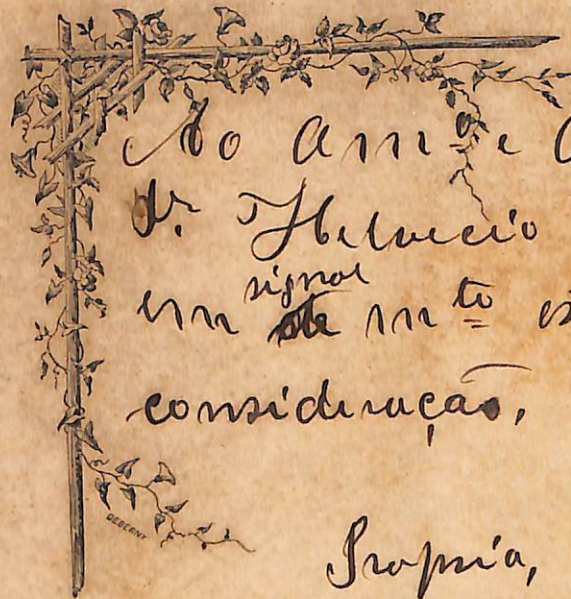 Ao Am.º e C
dr. Helvecio
em signal mto es
consideração,
Propria,
DEBERNY